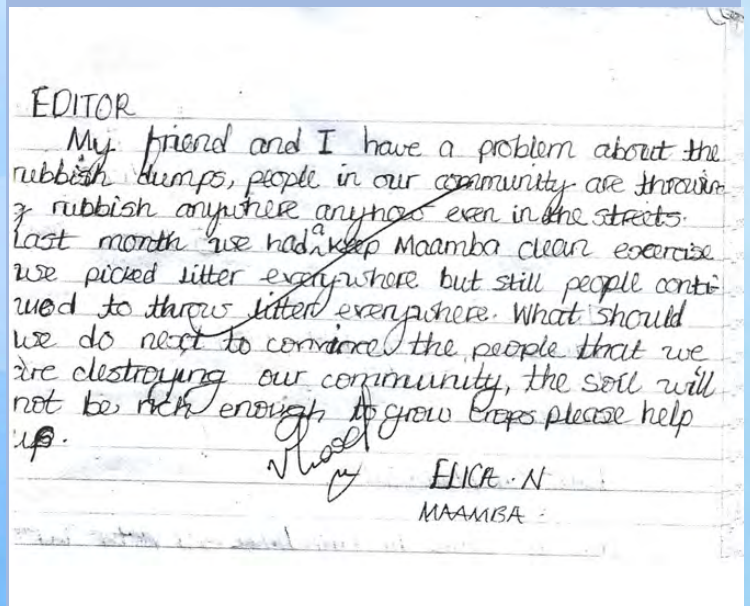 EDITOR
My friend and I have a problem about the
rubbish dumps, people in our community are throwin
g rubbish anywhere anyhow even in the streets.
Last month we had a keep Maamba clean exercise
we picked litter everywhere but still people conti-
nued to throw litter everywhere. What should
we do next to convince the people that we
are destroying our community, the soil will
not be rich enough to grow crops please help
us.
ELICA . N
MAAMBA